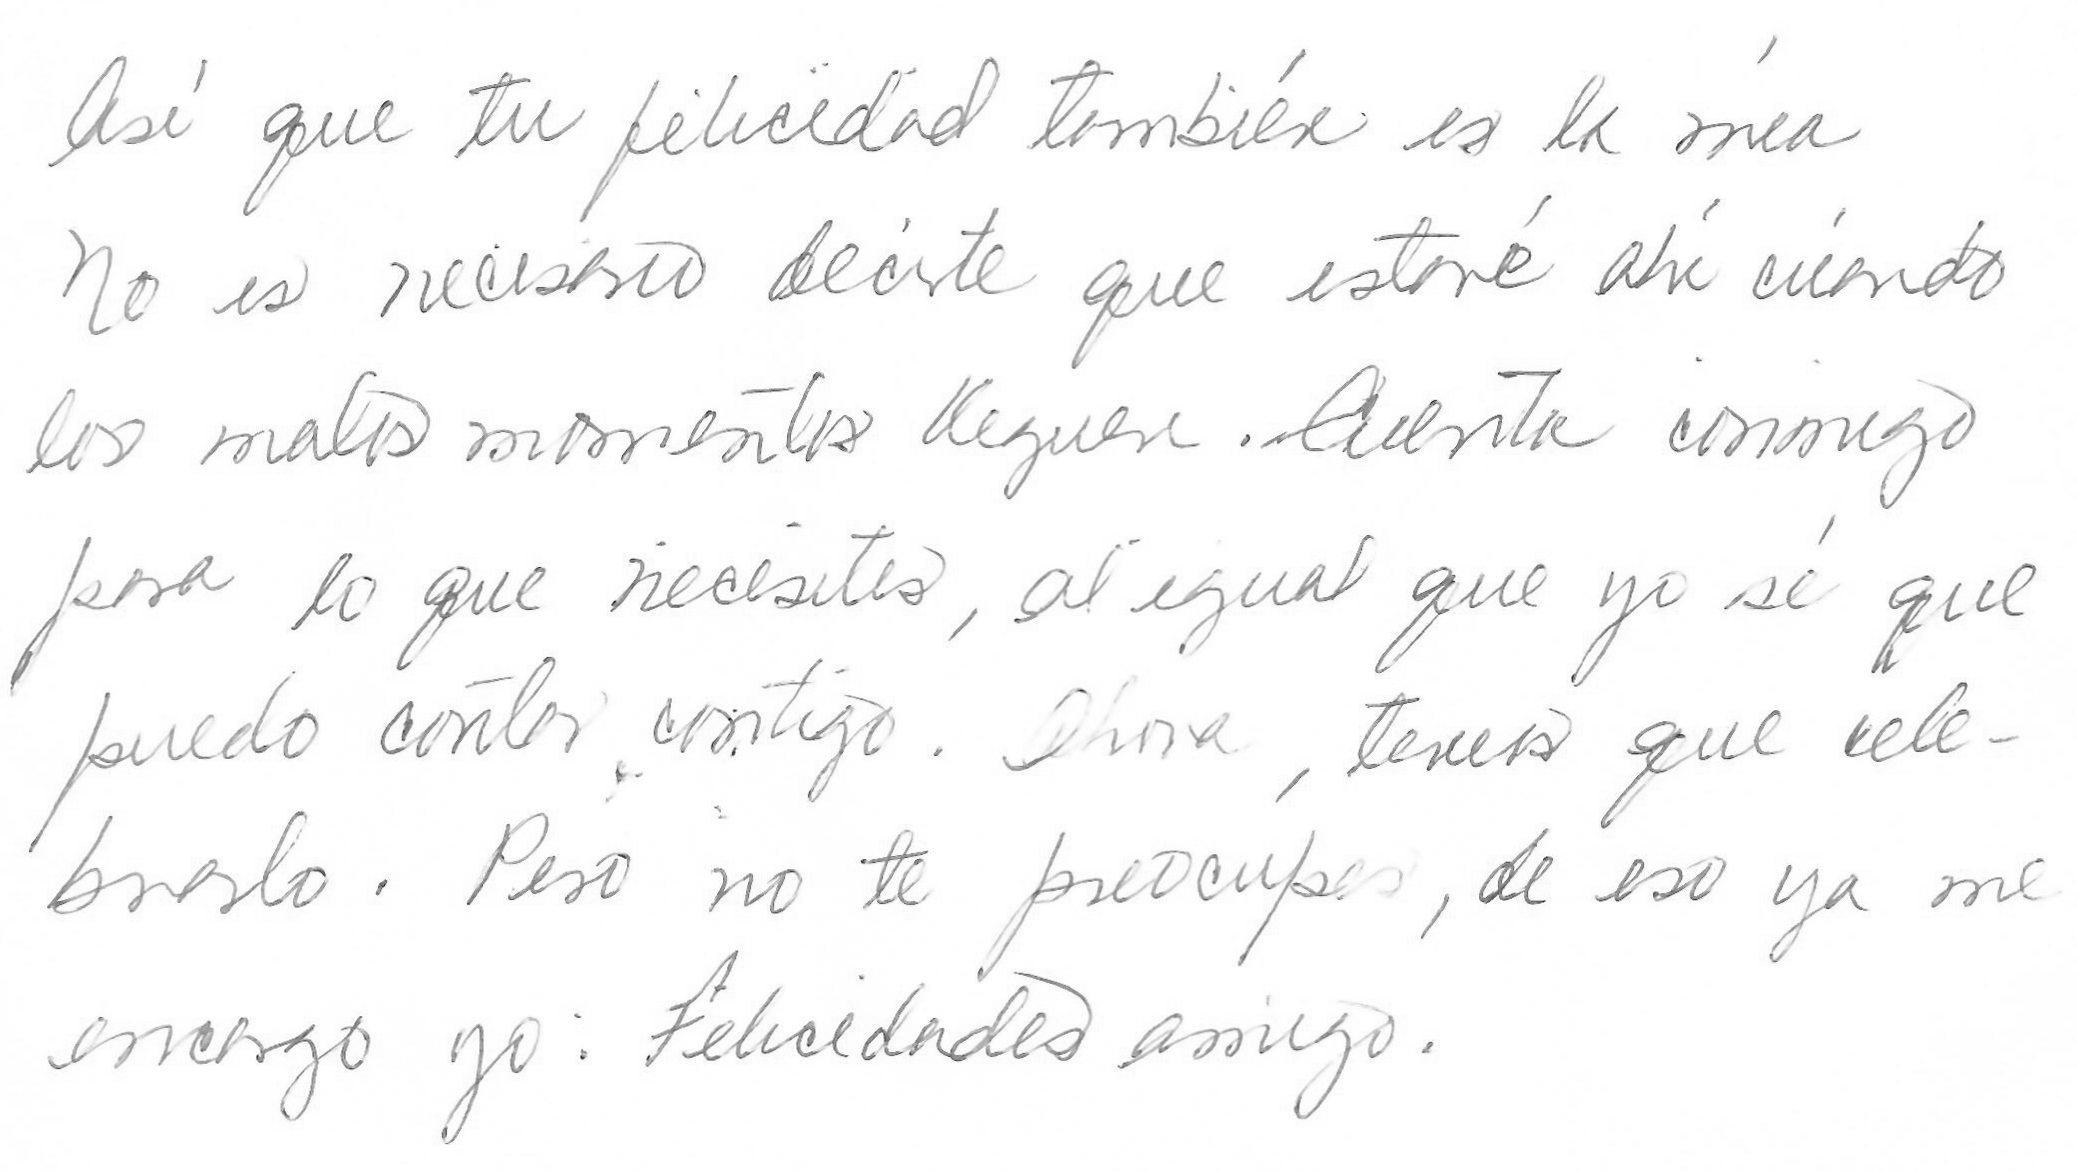 Así que tu felicidad también es la mía
No es necesario decirte que estaré ahí cuando
los malos momentos lleguen. Cuenta conmigo
para lo que necesites, al igual que yo sé que
puedo contar contigo. Ahora, tenemos que cele-
brarlo. Pero no te preocupes, de eso ya me
encargo yo. Felicidades amigo.